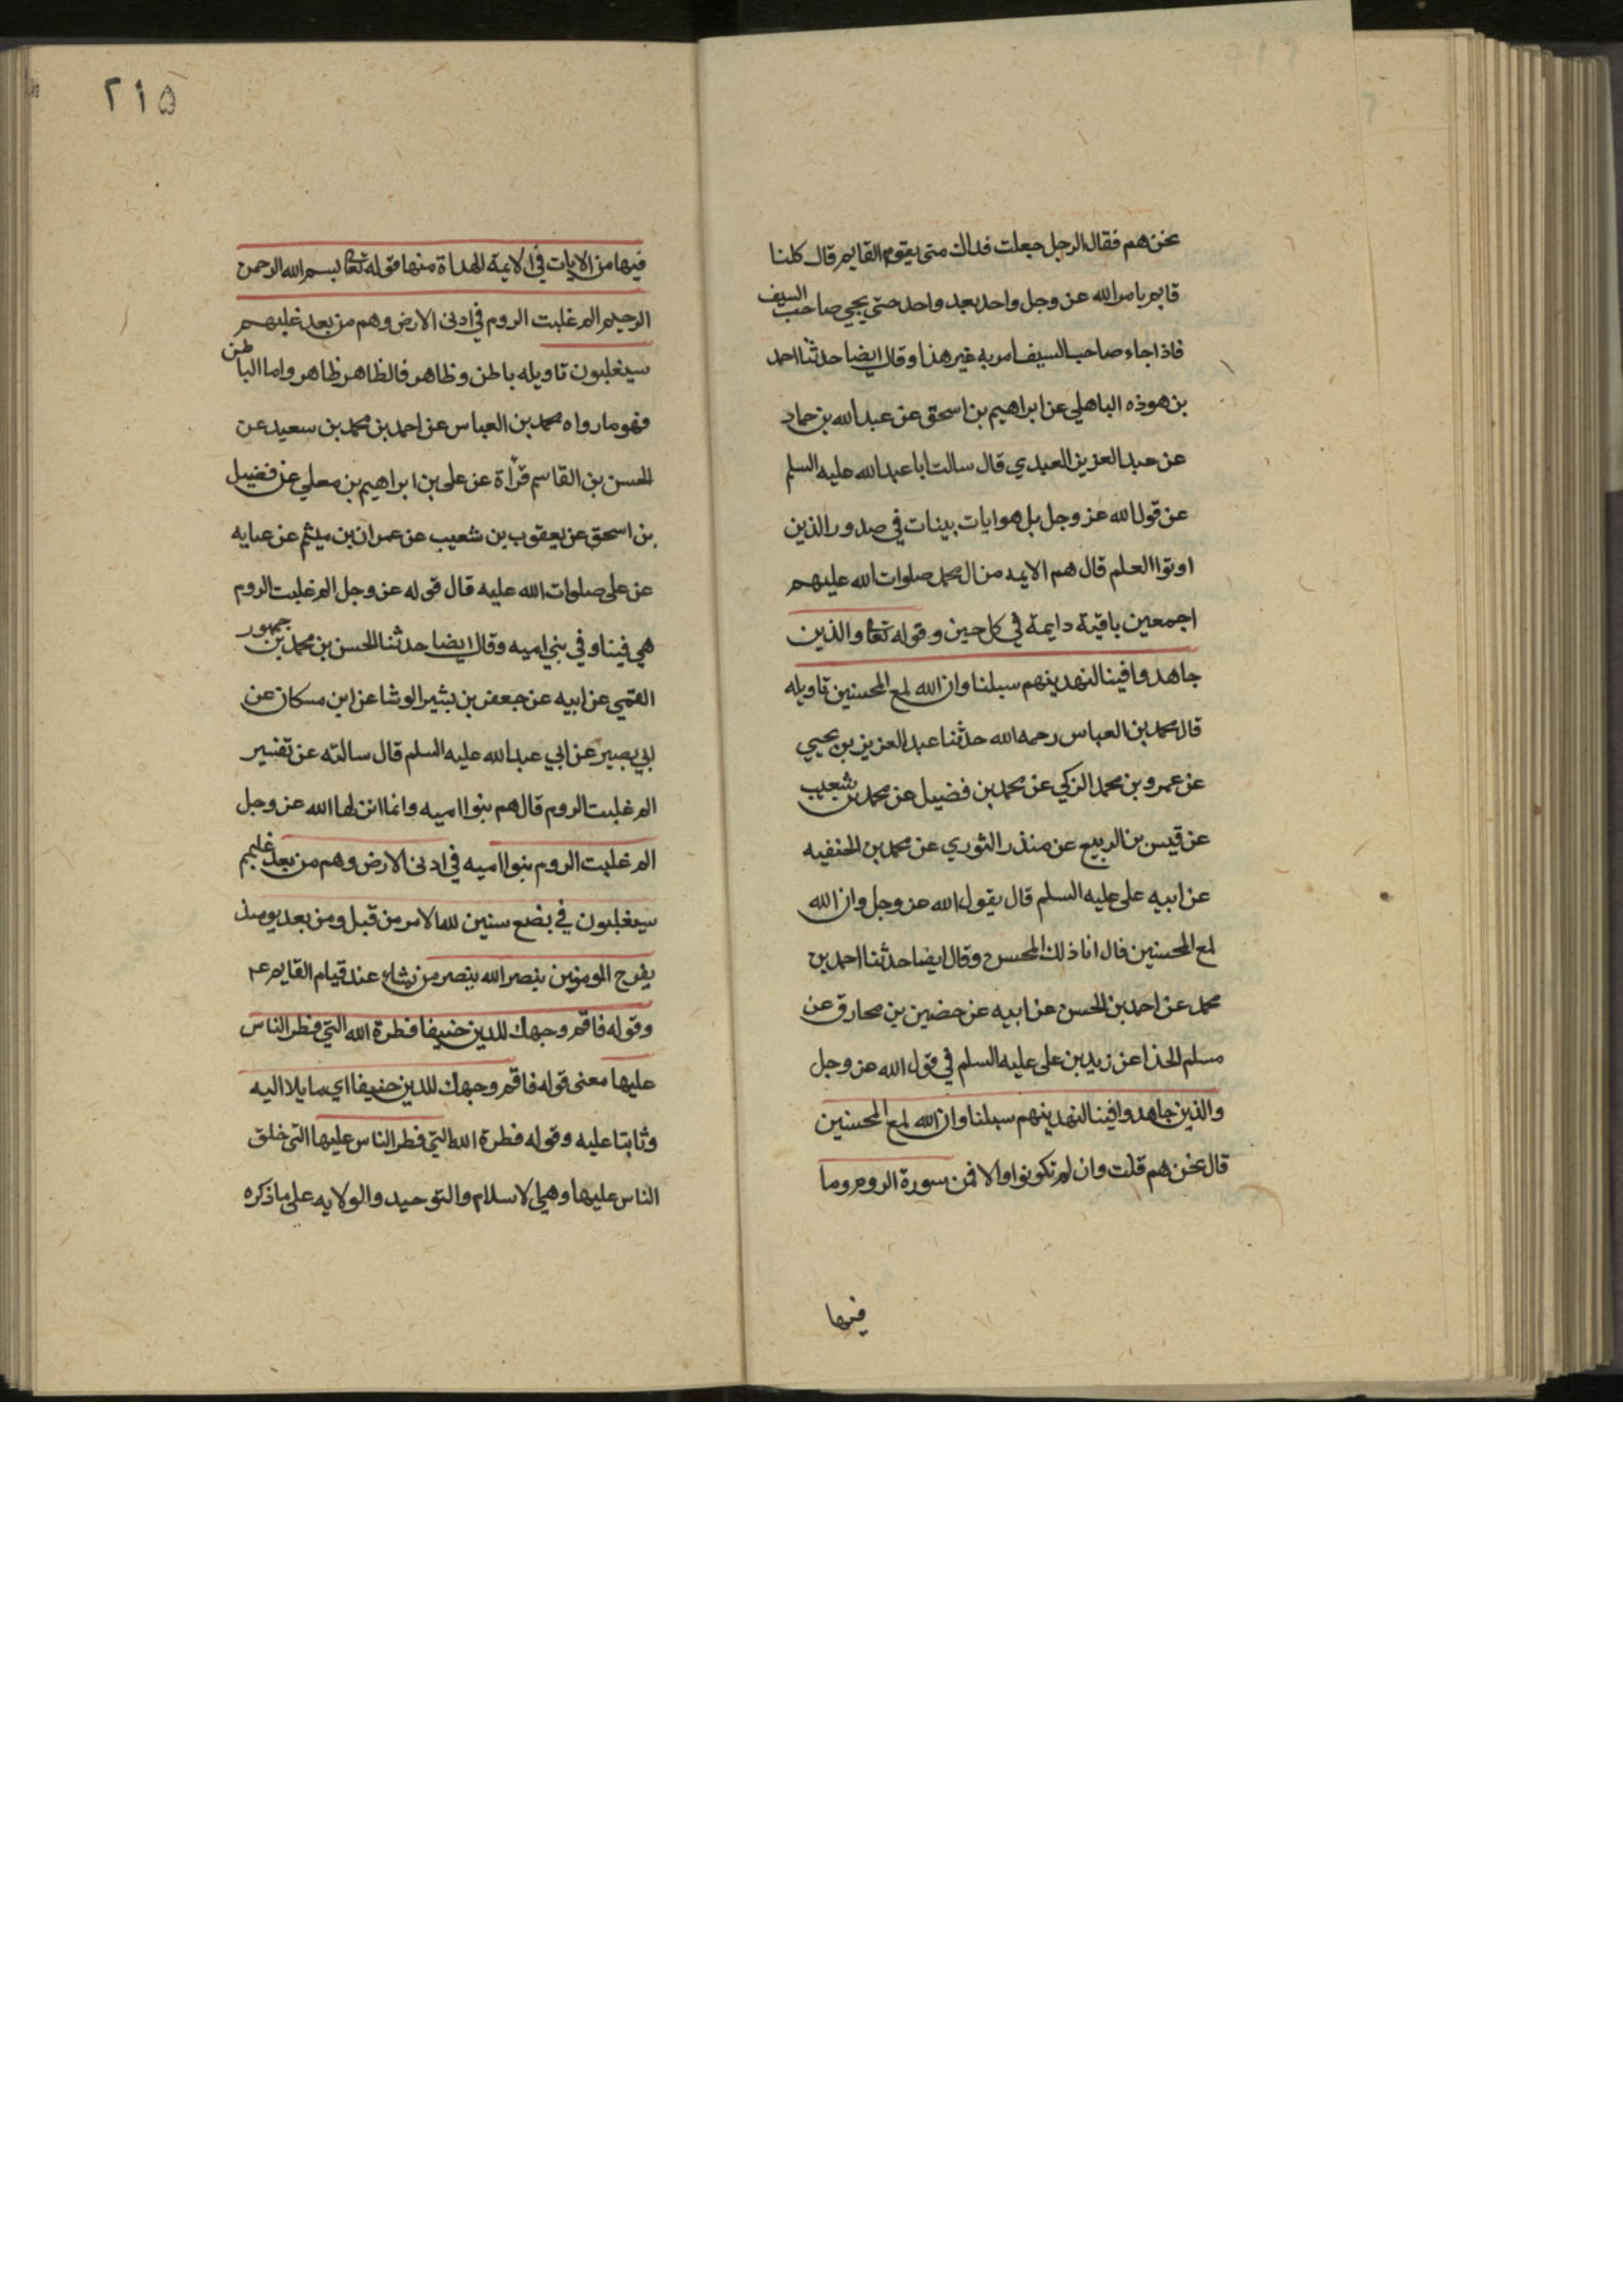 نحن هم فقال الرجل جعلت فداك متى يقوم القايم قال كلنا
قايم بامر الله عز وجل واحد بعد واحد حتى يجي صاحب السيف
فاذا جاء صاحب السيف امر به غير هذا وقال ايضا حدثنا احمد
بن هوذه الباهلي عن ابراهيم بن اسحق عن عبد الله بن حماد
عن عبد العزيز العبدي قال سالت ابا عبد الله عليه السلم
عن قول الله عز وجل بل هو ايات بينات في صدور الذين
اوتوا العلم قال هم الايمه من ال محمد صلوات الله عليهم
اجمعين باقية دايمة في كل حين وقوله تعا والذين
جاهدوا فينا لنهدينهم سبلنا وان الله لمع المحسنين تاويله
قال محمد بن العباس رحمه الله حدثنا عبد العزيز بن يحيي
عن عمرو بن محمد الزكي عن محمد بن فضيل عن محمد بن شعيب
عن قيس بن الربيع عن منذر الثوري عن محمد بن الحنفيه
عن ابيه علي عليه السلم قال يقول الله عز وجل وان الله
لمع المحسنين قال انا ذلك المحسن وقال ايضا حدثنا احمد بن
محمد عن احمد بن الحسن عن ابيه عن حضين بن محارق عن
مسلم الحذا عن زيد بن علي عليه السلم في قول الله عز وجل
والذين جاهدوا فينا لنهدينهم سبلنا وان الله لمع المحسنين
قال نحن هم قلت وان لم تكونوا والا فمن سورة الروم وما
فيها
٢١٥
فيها من الايات في الايمة الهداة منها قوله تعا بسم الله الرحمن
الرحيم الم غلبت الروم في ادنى الارض وهم من بعد غلبهم
سيغلبون تاويله باطن وظاهر فالظاهر ظاهر واما الباطن
فهو ما رواه محمد بن العباس عن احمد بن محمد بن سعيد عن
الحسن بن القاسم قرأة عن علي بن ابراهيم بن معلي عن فضيل
بن اسحق عن يعقوب بن شعيب عن عمران بن ميثم عن عبايه
عن علي صلوات الله عليه قال قوله عز وجل الم غلبت الروم
هي فينا وفي بني اميه وقال ايضا حدثنا الحسن بن محمد بن جمهور
القمي عن ابيه عن جعفر بن بشير الوشا عن ابن مسكان عن
ابي بصير عن ابي عبد الله عليه السلم قال سالته عن تفسير
الم غلبت الروم قال هم بنوا اميه وانما انزلها الله عز وجل
الم غلبت الروم بنوا اميه في ادنى الارض وهم من بعد غلبهم
سيغلبون في بضع سنين لله الامر من قبل ومن بعد يومئذ
يفرح المومنين بنصر الله ينصر من يشاء عند قيام القايم عم
وقوله فاقم وجهك للدين حنيفا فطرة الله التي فطر الناس
عليها معنى قوله فاقم وجهك للدين حنيفا اي مايلا اليه
وثابتا عليه وقوله فطرة الله التي فطر الناس عليها التي خلق
الناس عليها وهي الاسلام والتوحيد والولايه على ما ذكره